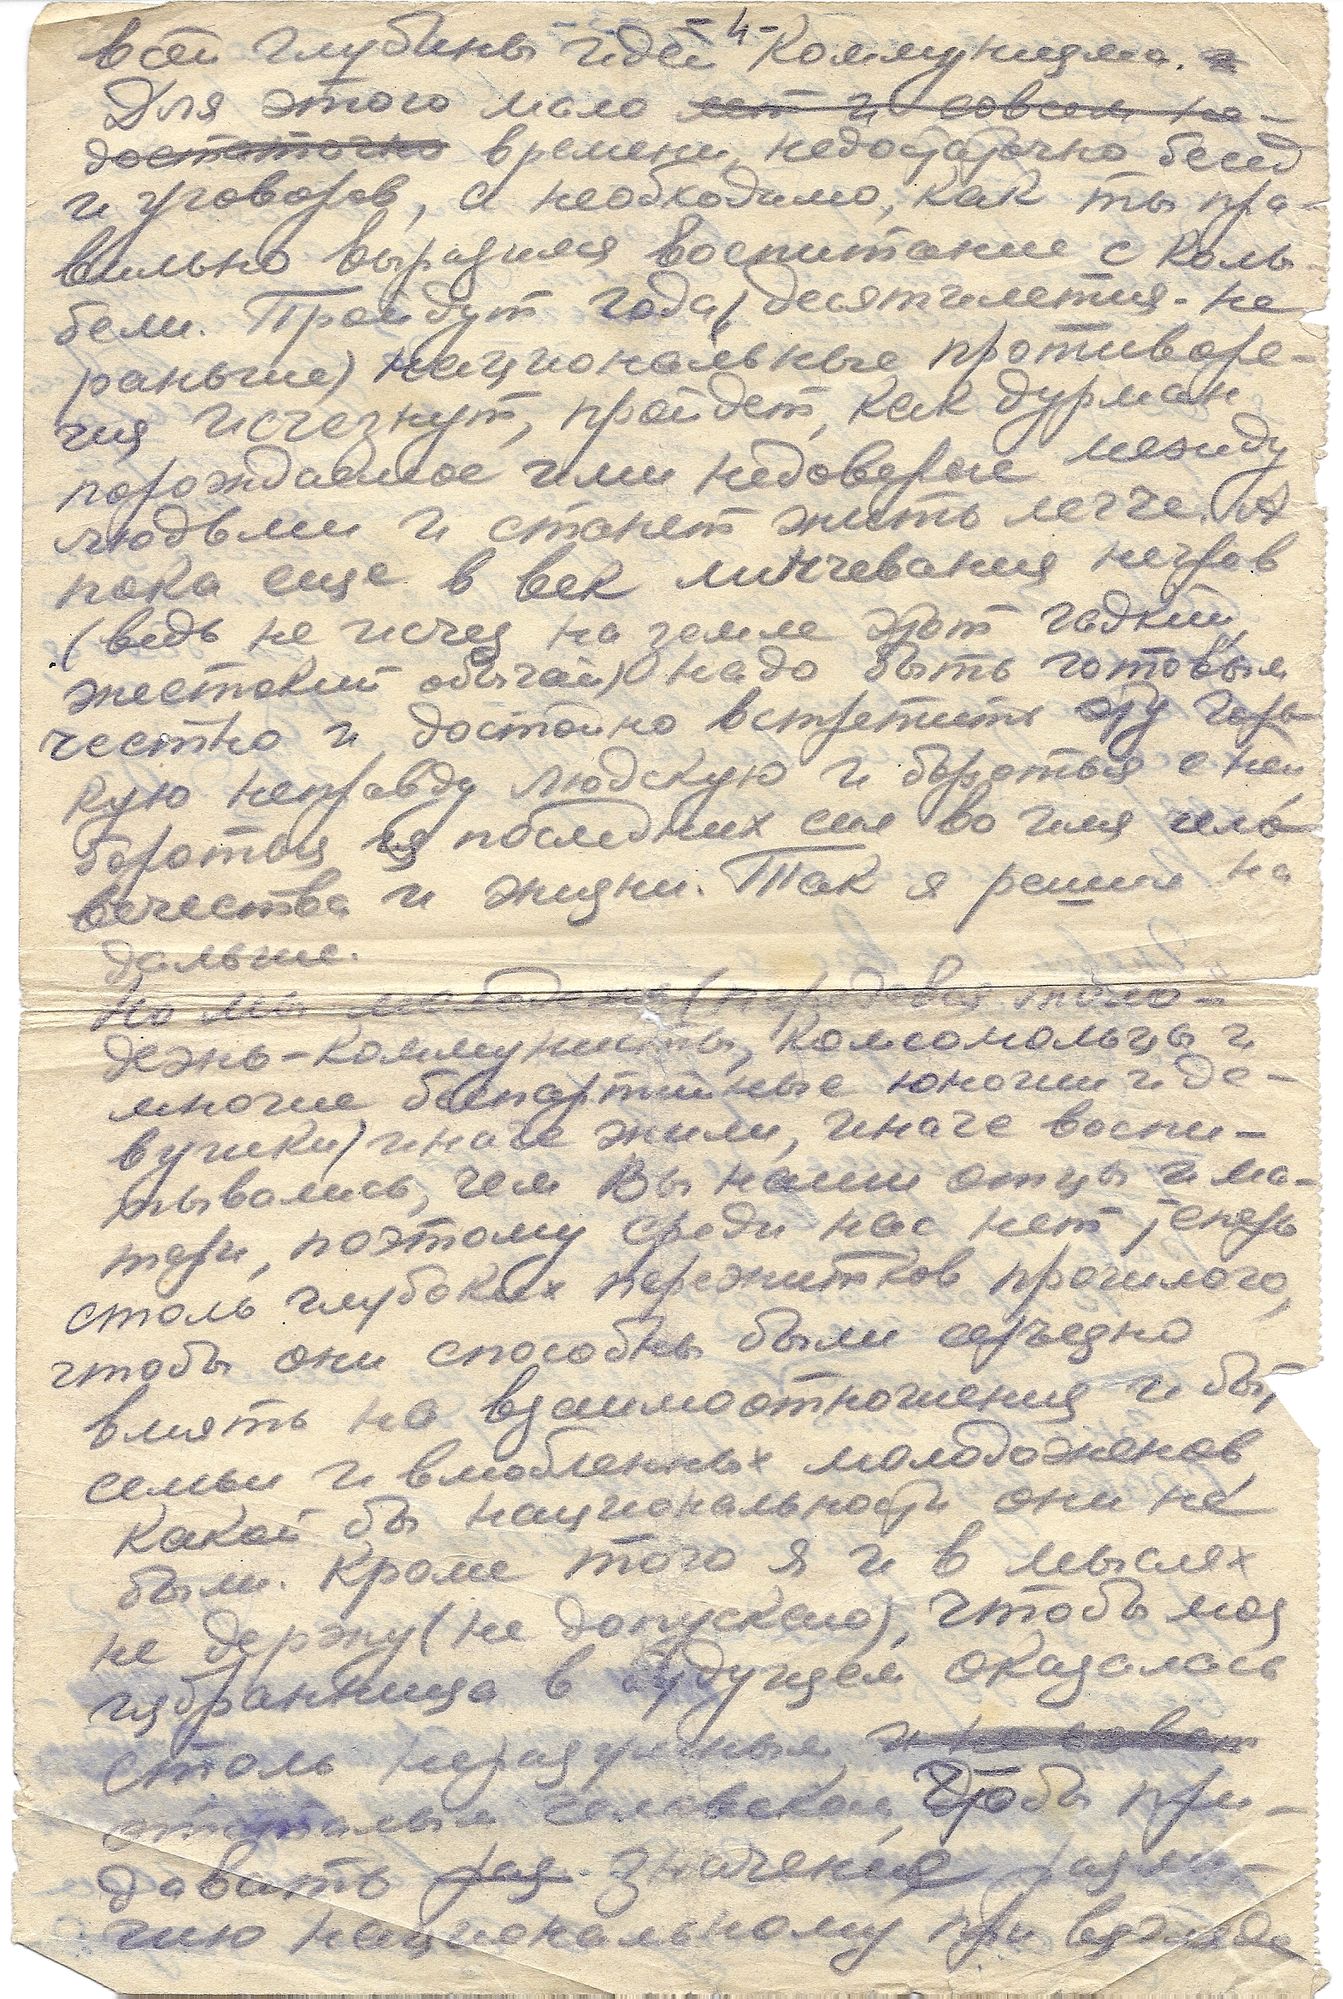 -4-
всей глубины идей Коммунизма.
Для этого мало лет и совсем не-
достаточно времени, недостаточно бесед
и уговоров, а необходимо, как ты пра-
вильно выразился воспитание с колы-
бели. Пройдут года (десятилетия - не
раньше) национальные противоре-
чия исчезнут, пройдет, как дурман
порождаемое ими недоверие между
людьми и станет жить легче. А
пока еще в век линчевания негров
(ведь не исчез на земле этот гадкий,
жестокий обычай) надо быть готовым
честно и достойно встретить эту горь-
кую неправду людскую и бороться с ней
бороться из последних сил во имя чело-
вечества и жизни. Так я решил на
дальше.
Но мы молодежь (передовая моло-
дежь-коммунисты, комсомольцы и
многие беспартийные юноши и де-
вушки) иначе жили, иначе воспи-
тывались, чем Вы наши отцы и ма-
тери, поэтому среди нас нет теперь
столь глубоких пережитков прошлого,
чтобы они способны были серьезно
влиять на взаимоотношения и быт
семьи и влюбленных молодоженов,
какой бы национальности они не
были. Кроме того я и в мыслях
не держу (не допускаю), чтобы моя
избранница в будущем оказалась
столь неразумным
отсталым человеком, чтобы при-
давать раз значение разли-
чию национальному при взгляде